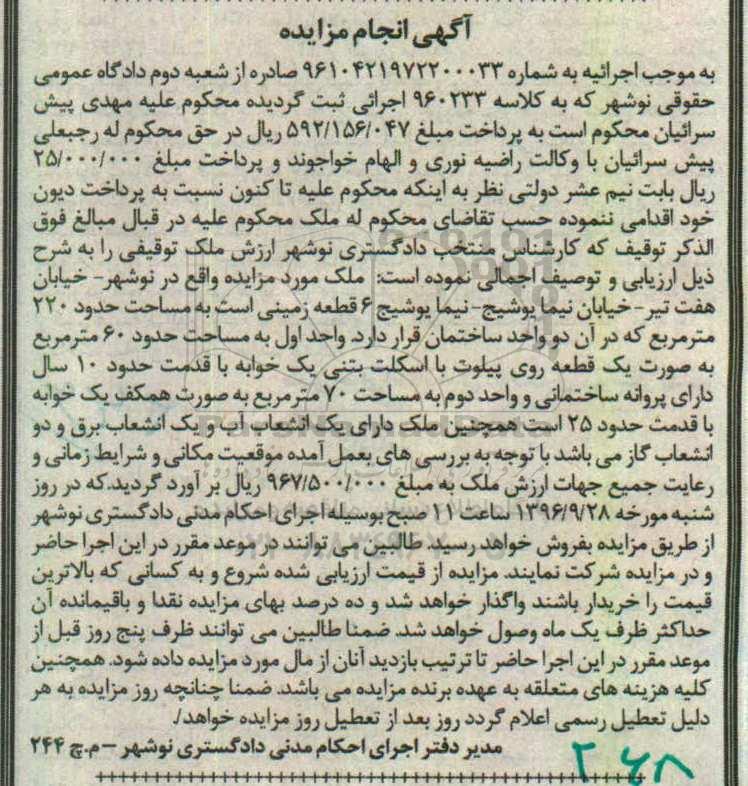 آگهی انجام مزایده
به موجب اجرائیه به شماره ۹۶۱۰۴۲۱۹۷۲۲۰۰۰۳۳ صادره از شعبه دوم دادگاه عمومی
حقوقی نوشهر که به کلاسه ۹۶۰۲۳۳ اجرائی ثبت گردیده محکوم علیه مهدی پیش
سرائیان محکوم است به پرداخت مبلغ ۵۹۲/۱۵۶/۰۴۷ ریال در حق محکوم له رجبعلی
پیش سرائیان با وکالت راضیه نوری و الهام خواجوند و پرداخت مبلغ ۲۵/۰۰۰/۰۰۰
ریال بابت نیم عشر دولتی نظر به اینکه محکوم علیه تا کنون نسبت به پرداخت دیون
خود اقدامی ننموده حسب تقاضای محکوم له ملک محکوم علیه در قبال مبالغ فوق
الذکر توقیف که کارشناس منتخب دادگستری نوشهر ارزش ملک توقیفی را به شرح
ذیل ارزیابی و توصیف اجمالی نموده است: ملک مورد مزایده واقع در نوشهر- خیابان
هفت تیر-خیابان نیما یوشیج- نیما یوشیج ۶ قطعه زمینی است به مساحت حدود ۲۲۰
مترمربع که در آن دو واحد ساختمان قرار دارد. واحد اول به مساحت حدود ۶۰ مترمربع
به صورت یک قطعه روی پیلوت با اسکلت بتنی یک خوابه با قدمت حدود ۱۰ سال
دارای پروانه ساختمانی و واحد دوم به مساحت ۷۰ مترمربع به صورت همکف یک خوابه
با قدمت حدود ۲۵ است همچنین ملک دارای یک انشعاب آب و یک انشعاب برق و دو
انشعاب گاز می باشد با توجه به بررسی های بعمل آمده موقعیت مکانی و شرایط زمانی و
رعایت جمیع جهات ارزش ملک به مبلغ ۹۶۷/۵۰۰/۰۰۰ ریال بر آورد گردید.که در روز
شنبه مورخه ۱۳۹۶/۹/۲۸ ساعت ۱۱ صبح بوسیله اجرای احکام مدنی دادگستری نوشهر
از طریق مزایده بفروش خواهد رسید. طالبین می توانند در موعد مقرر در این اجرا حاضر
و در مزایده شرکت نمایند. مزایده از قیمت ارزیابی شده شروع و به کسانی که بالاترین
قیمت را خریدار باشند واگذار خواهد شد و ده درصد بهای مزایده نقدا و باقیمانده آن
حداکثر ظرف یک ماه وصول خواهد شد. ضمنا طالبین می توانند ظرف پنج روز قبل از
موعد مقرر در این اجرا حاضر تا ترتیب بازدید آنان از مال مورد مزایده داده شود. همچنین
کلیه هزینه های متعلقه به عهده برنده مزایده می باشد. ضمنا چنانچه روز مزایده به هر
دلیل تعطیل رسمی اعلام گردد روز بعد از تعطیل روز مزایده خواهد/.
مدیر دفتر اجرای احکام مدنی دادگستری نوشهر –م.چ ۲۴۴